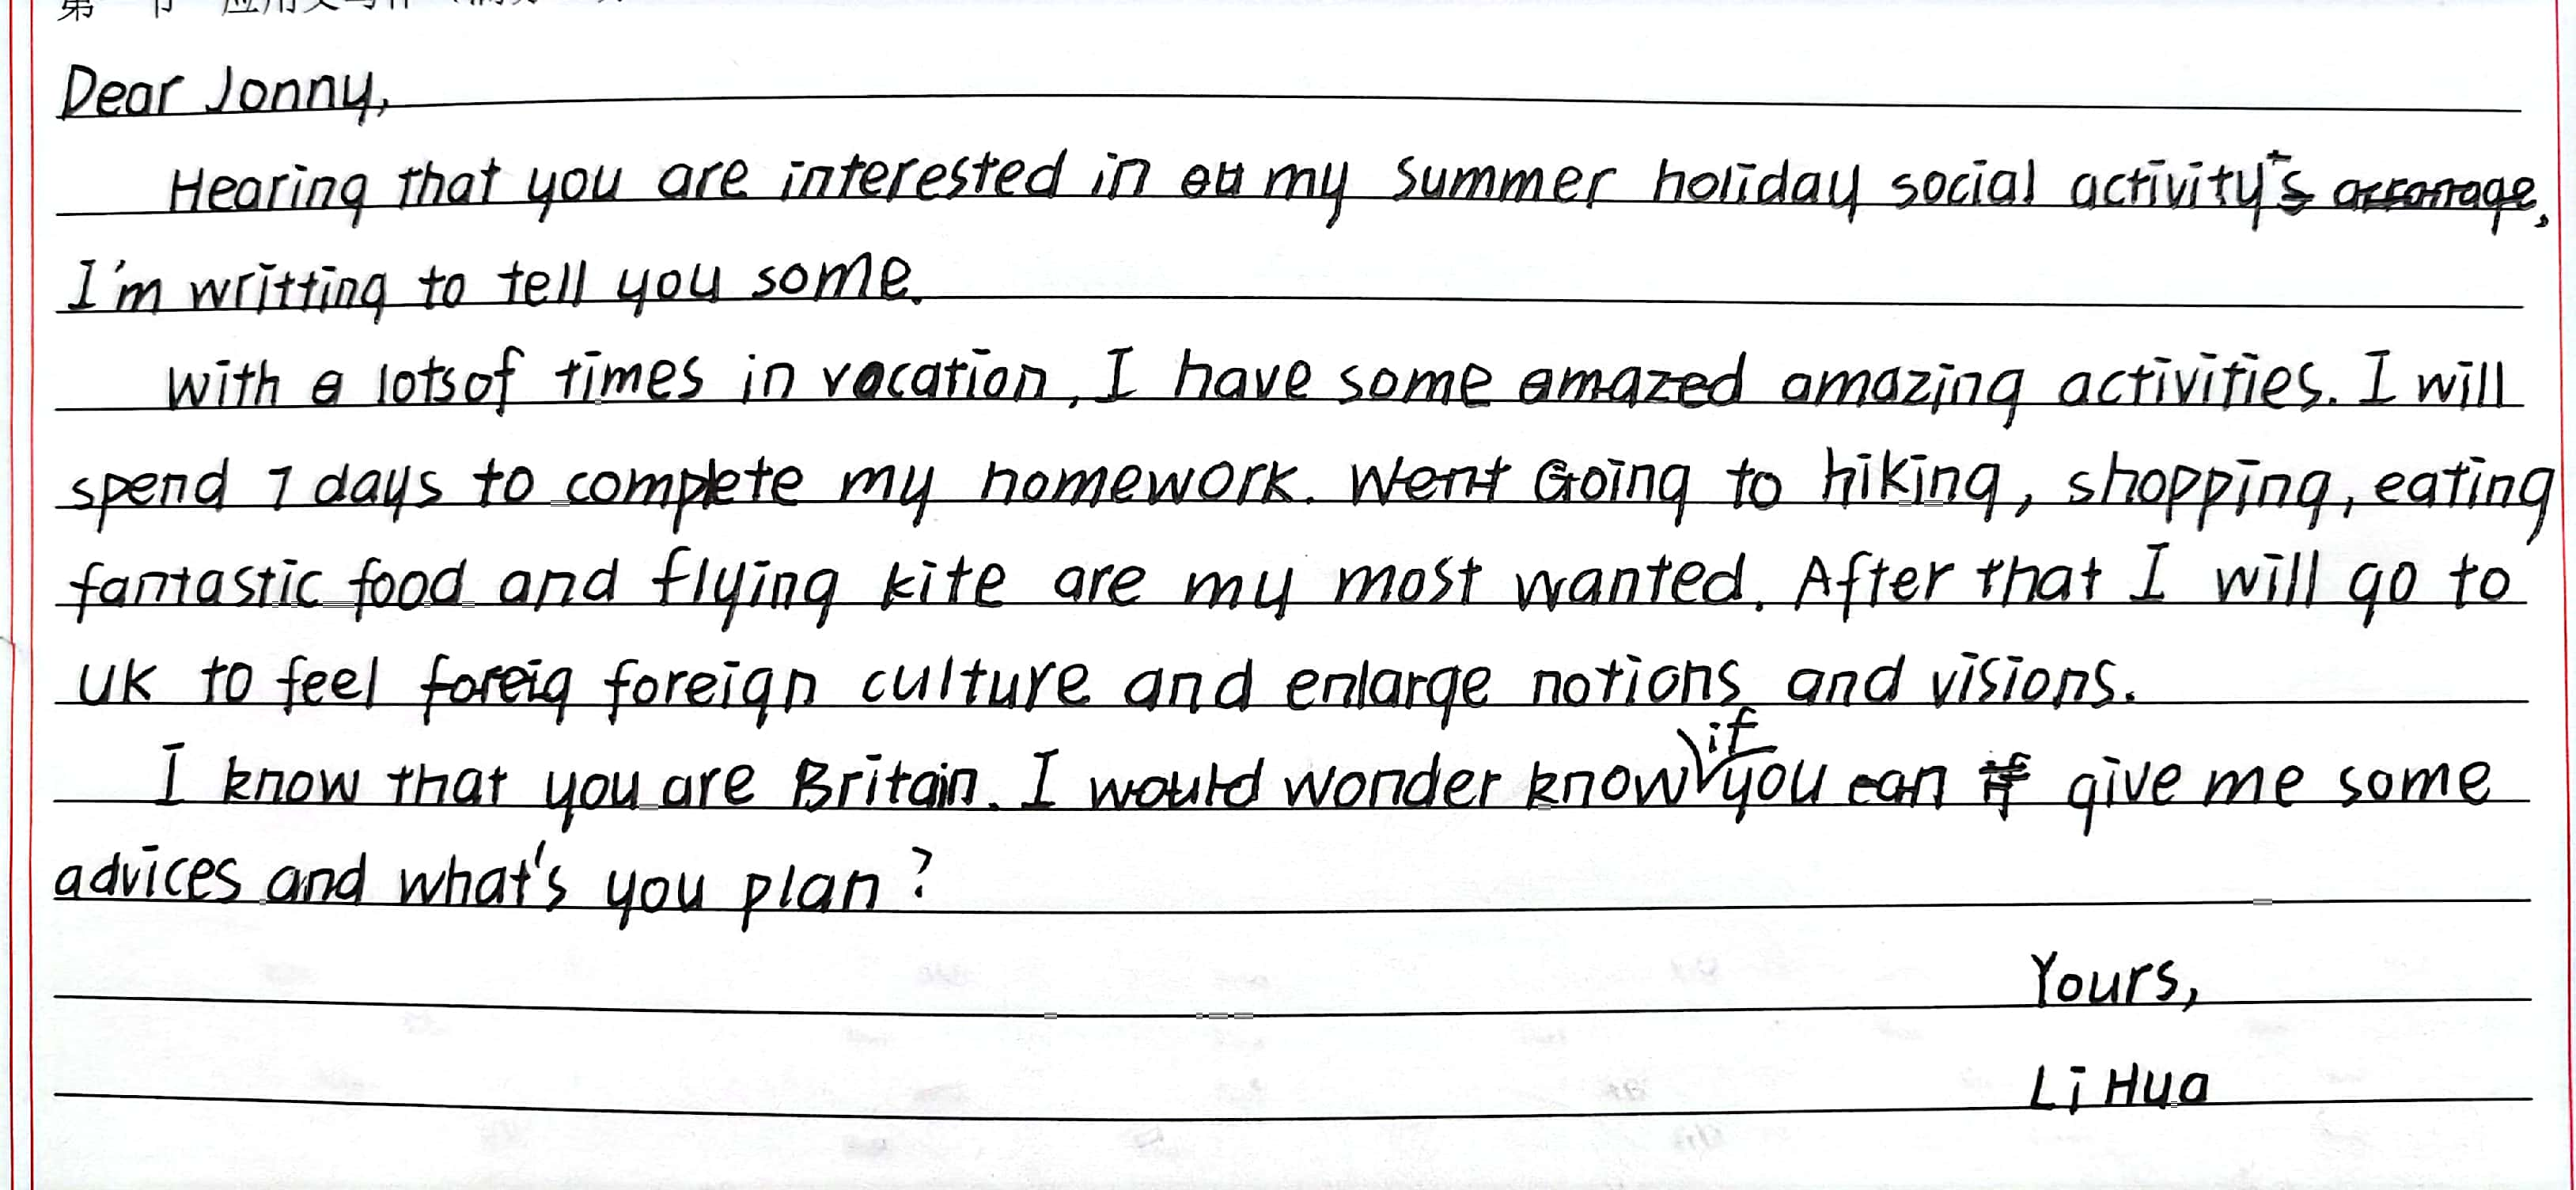 Dear Jonny,
Hearing that you are interested in my summer holiday social activity,
I'm writting to tell you some.
With a lots of times in vacation, I have some amazing activities. I will
spend 7 days to complete my homework. Going to hiking, shopping, eating
fantastic food and flying kite are my most wanted. After that I will go to
UK to feel foreign culture and enlarge notions and visions.
I know that you are Britain. I wonder know if you give me some
advices and what's you plan?
Yours,
Li Hua